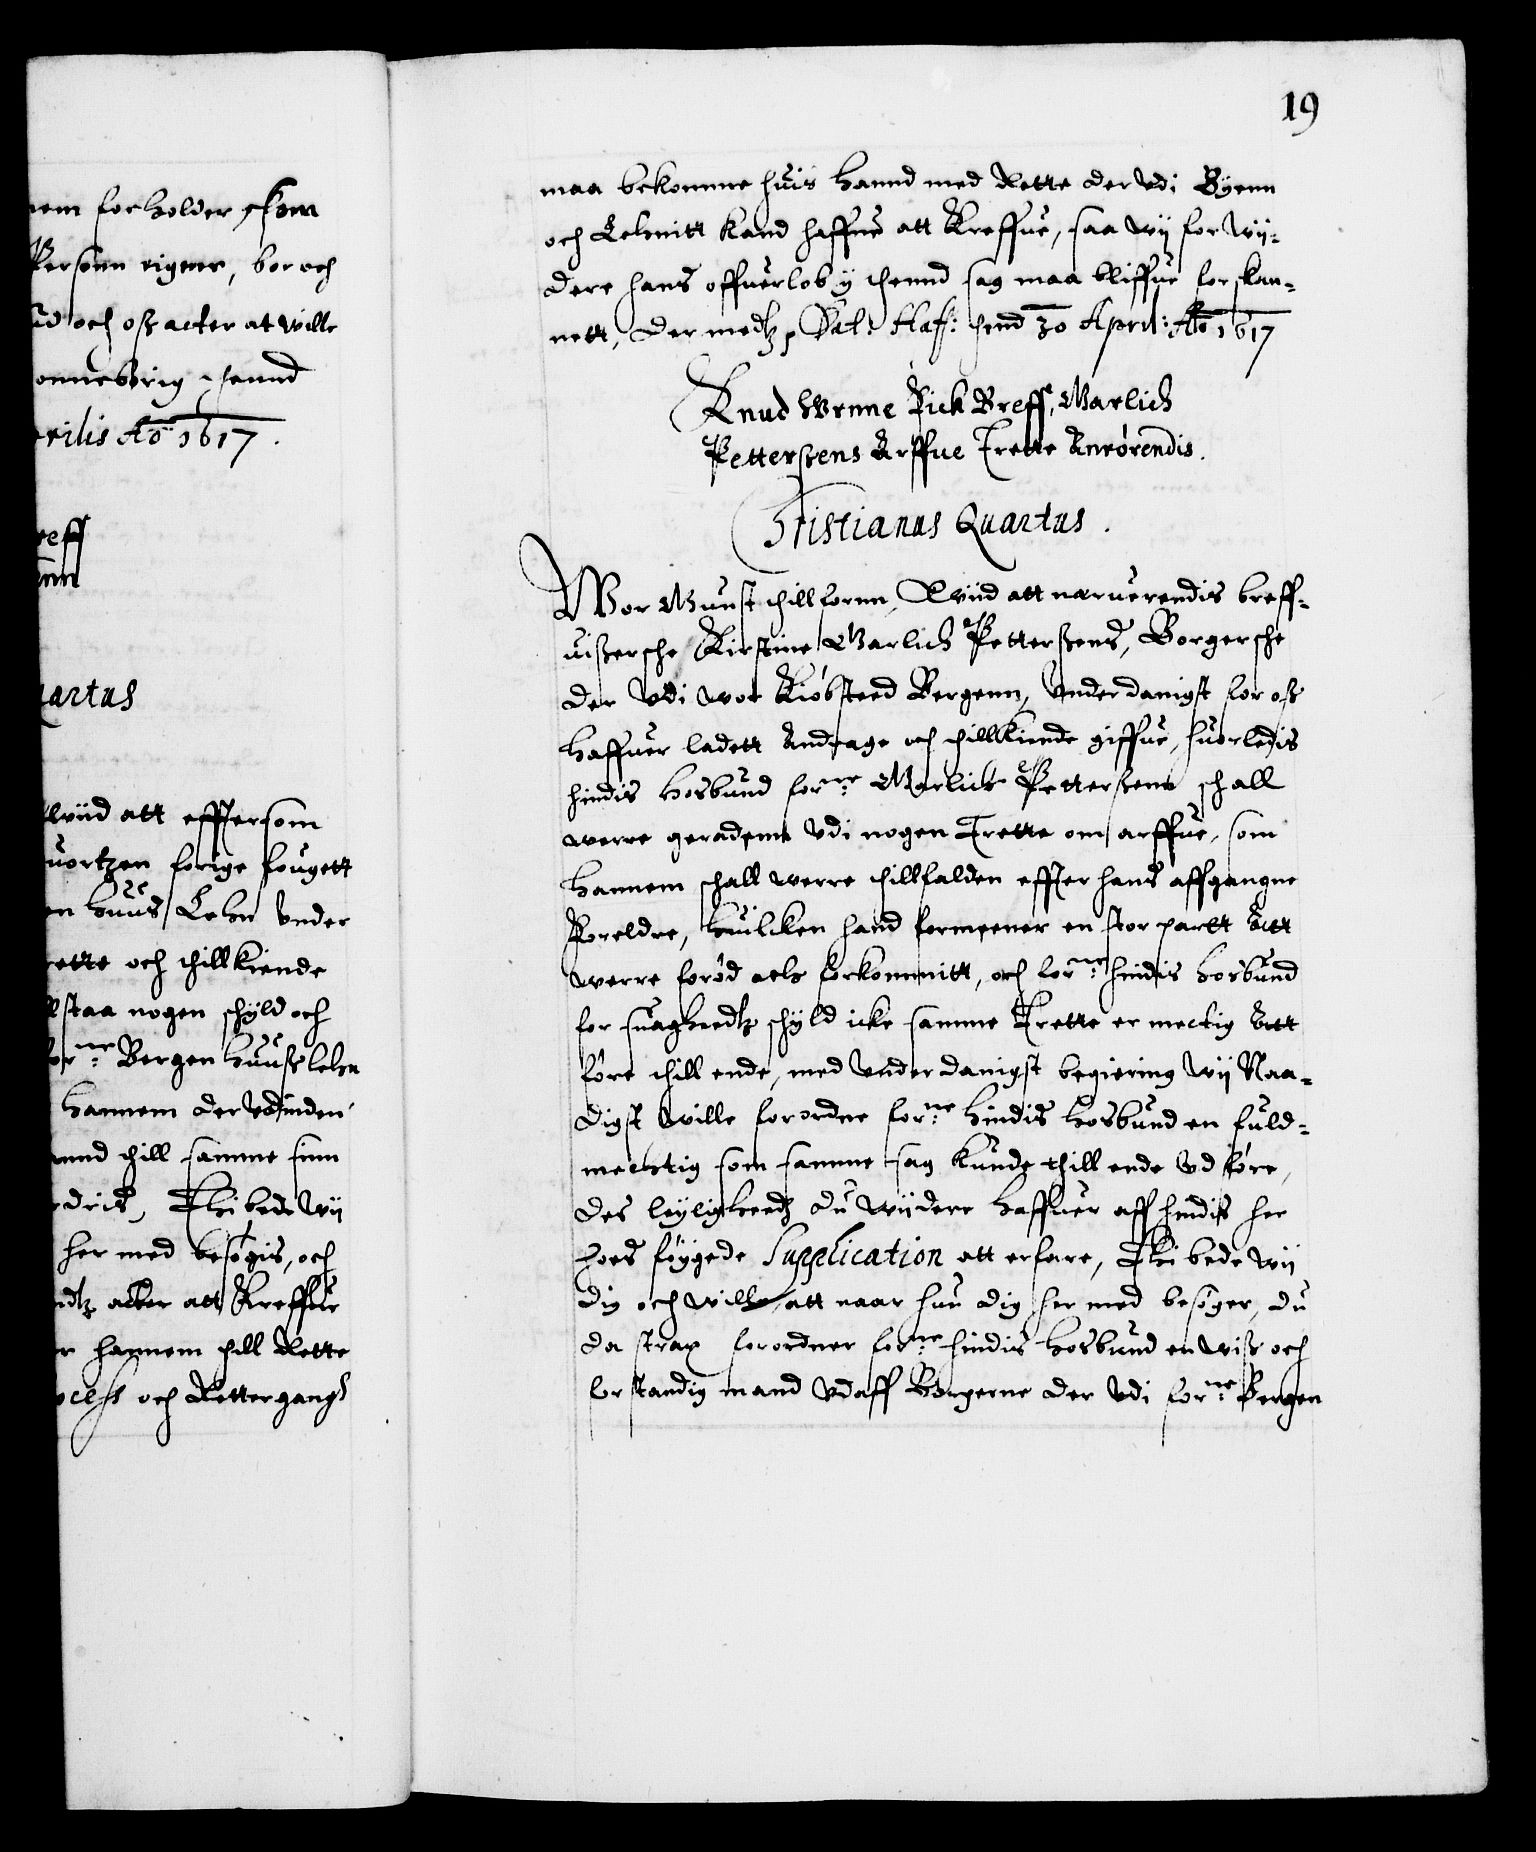 nem forholder, som
Personn eigner, bor och
ud och osz acter at wille
onnebörig, sennd
prilis Ao 1617.
reff
artus
wiid att effttersom
uortzen forige fougett
en huus Lehn vnder
rette och thillkiende
staa nogen schyld och
orne Bergen huusz lehn
hannem der vdinden
mnd thill samme sum
Thi bede wij
her med besögis, och
acter att Kreffue
hannem thill Rette
ocess och Rettergang
19
maa bekomme huis hannd med Rette der vdi Byenn
och Lehnitt kand haffue att Kreffue, saa wij for wij-
dere hans offuerlob y thennd sag maa bliffue forskan-
nett, der medtz, Dat: Haf: thend 30 April: Ao 1617
Knud Vrnne Fick Breff, Garlich
Petterszens Arffue Trette Anrörendis.
Christianus Quartus.
Wor Gunst thillfornn, Wiid att neruerendis breff-
uiszersche Kirstine Garlich Petterszens, Borgersche
der vdi wor Kiöbsted Bergenn, vnderdanigst for osz
haffuer ladett Andrage och thillkiende giffue, huorledis
hindis hosbund forne Garlich Petterszenn schall
werre geraden vdi nogen Trette om arffue, som
hannem schall werre thillfalden effter hans affgangne
Foreldre, huilcken hand formeener en stor partt Att
werre forød aels forkommitt, och forne hindis hosbund
for suagheedtz schyld icke samme Trette er mectig Att
före thill ende, med vnderdanigst begiering wij Naa-
digst wille forordne forne hindis hosbund en fuld-
mechtig som samme sag kunde thill ende vdföre,
des leyligheedz du wiidere haffuer aff hindis her
hoes föygede Supplication att erfare, Thi bede wij
dig och wille, att naar hun dig her med besöger, du
da strax forordner forne hindis hosbund en wisz och
forstandig mand vdaff Borgerne der vdi forne Bergen